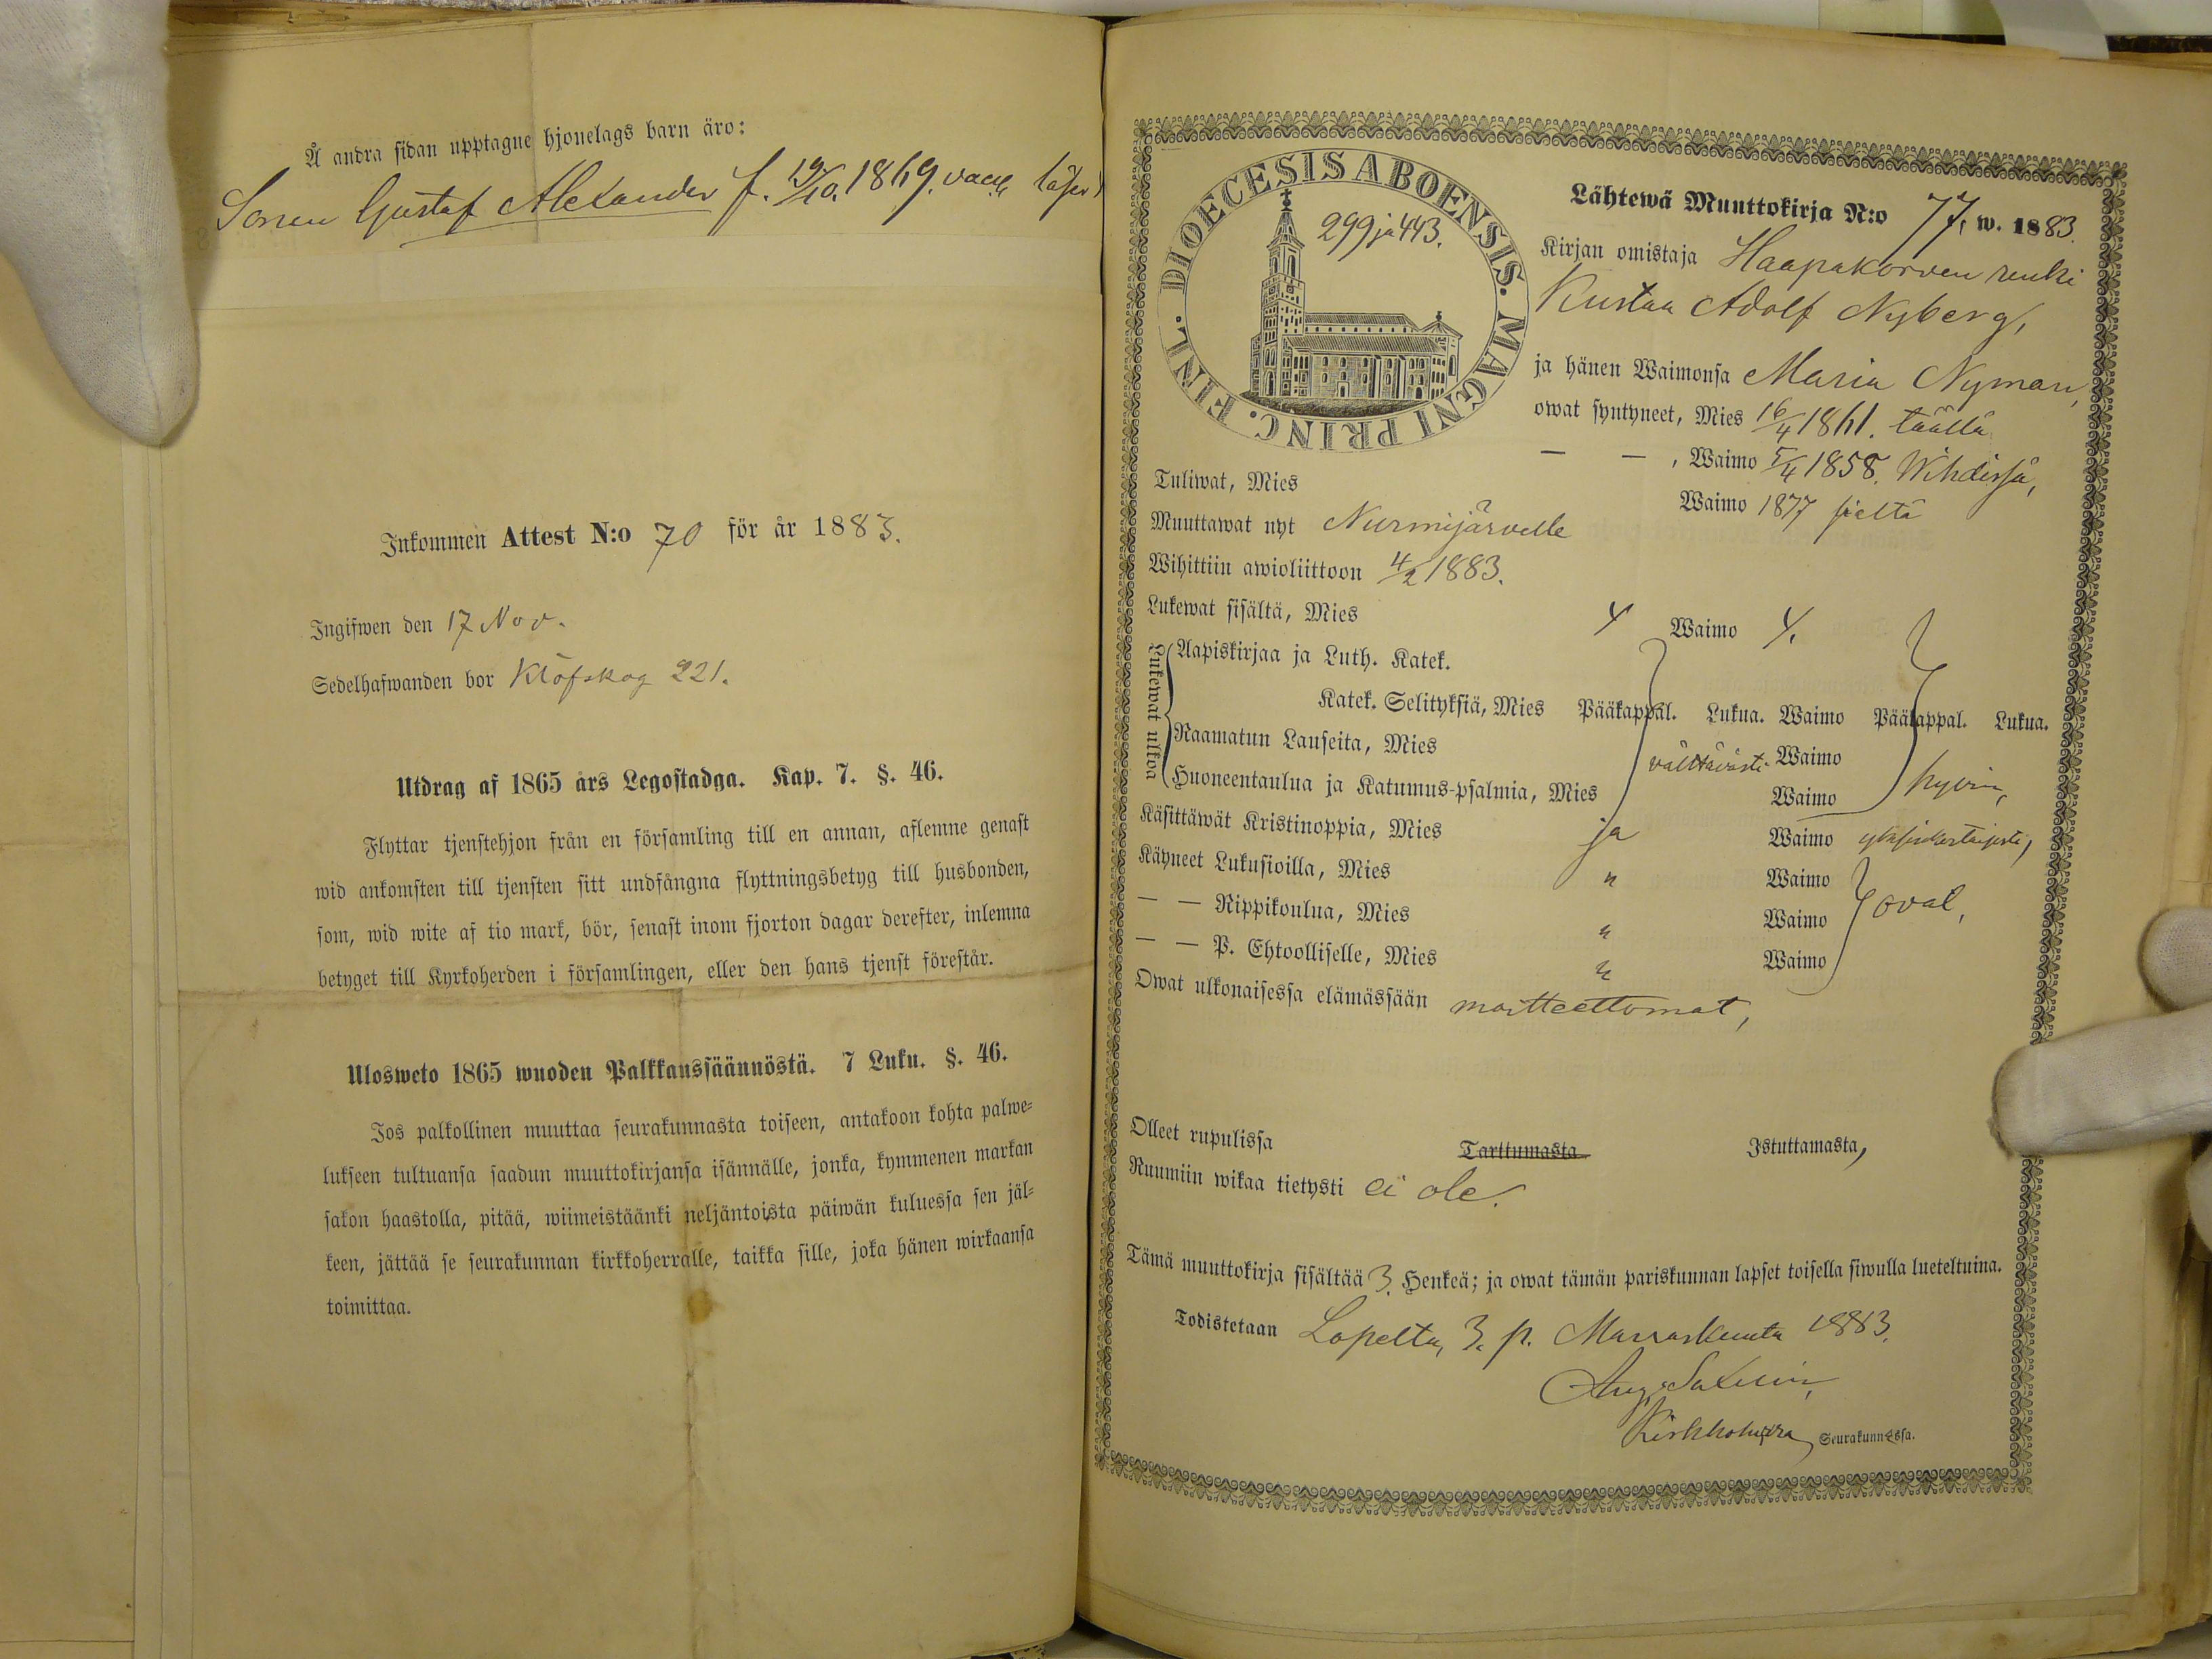 Å andra sidan upptagne hjonelags barn äro:
Sonen Gustaf Alexander f. 19/10. 1869. vacc. läser
Inkommen Attest N:o 70 för år 1883.
Ingifwen den 17 Nov.
Sedelhafwanden bor Klöfskog 221.
Utdrag af 1865 års Legostadga. Kap. 7. §. 46.
Flyttar tjenstehjon från en församling till en annan, aflemne genast
wid ankomsten till tjensten sitt undfångna flyttningsbetyg till husbonden,
som, wid wite af tio mark, bör, senast inom fjorton dagar derefter, inlemna
betyget till Kyrkoherden i församlingen, eller den hans tjenst förestår.
Ulosweto 1865 wuoden Palkkaussäännöstä. 7 Luku. §. 46.
Jos palkollinen muuttaa seurakunnasta toiseen, antakoon kohta palwe-
lukseen tultuansa saadun muuttokirjansa isännälle, jonka, kymmenen markan
sakon haastolla, pitää, wiimeistäänki neljäntoista päiwän kuluessa sen jäl-
keen, jättää se seurakunnan kirkkoherralle, taikka sille, joka hänen wirkaansa
toimittaa.
DIOECESIS ABOENSIS. MAGNI PRINC. FINL.
299 ja 443.
Lähtewä Muuttokirja N:o 77, w. 1883.
Kirjan omistaja Haapakorven renki
Kustaa Adolf Nyberg,
ja hänen Waimonsa Maria Nyman,
owat syntyneet, Mies 16/4 1861. täällä
— — , Waimo 5/4 1858. Wihdissä,
Tuliwat, Mies Waimo 1877 sieltä
Muuttawat nyt Nurmijärvelle
Wihittiin awioliittoon 4/2 1883.
Lukewat sisältä, Mies Y Waimo Y.
Lukewat ulkoa
Aapiskirjaa ja Luth. Katek.
Katek. Selityksiä, Mies Pääkappal. Lukua. Waimo Pääkappal. Lukua.
Raamatun Lauseita, Mies välttävästi Waimo
Huoneentaulua ja Katumus-psalmia, Mies Waimo hyvin,
Käsittäwät Kristinoppia, Mies ja Waimo yksinkertaisesti,
Käyneet Lukusioilla, Mies " Waimo
— — Rippikoulua, Mies " Waimo oval,
— — P. Ehtoolliselle, Mies " Waimo
Owat ulkonaisessa elämässään moitteettomat,
Olleet rupulissa Tarttumasta Istuttamasta,
Ruumiin wikaa tietysti ei ole.
Tämä muuttokirja sisältää 3. Henkeä; ja owat tämän pariskunnan lapset toisella siwulla lueteltuina.
Todistetaan Lopelta, 3. p. Marraskuuta 1883.
Aug. Saxelin,
Kirkkoherra Seurakunnassa.